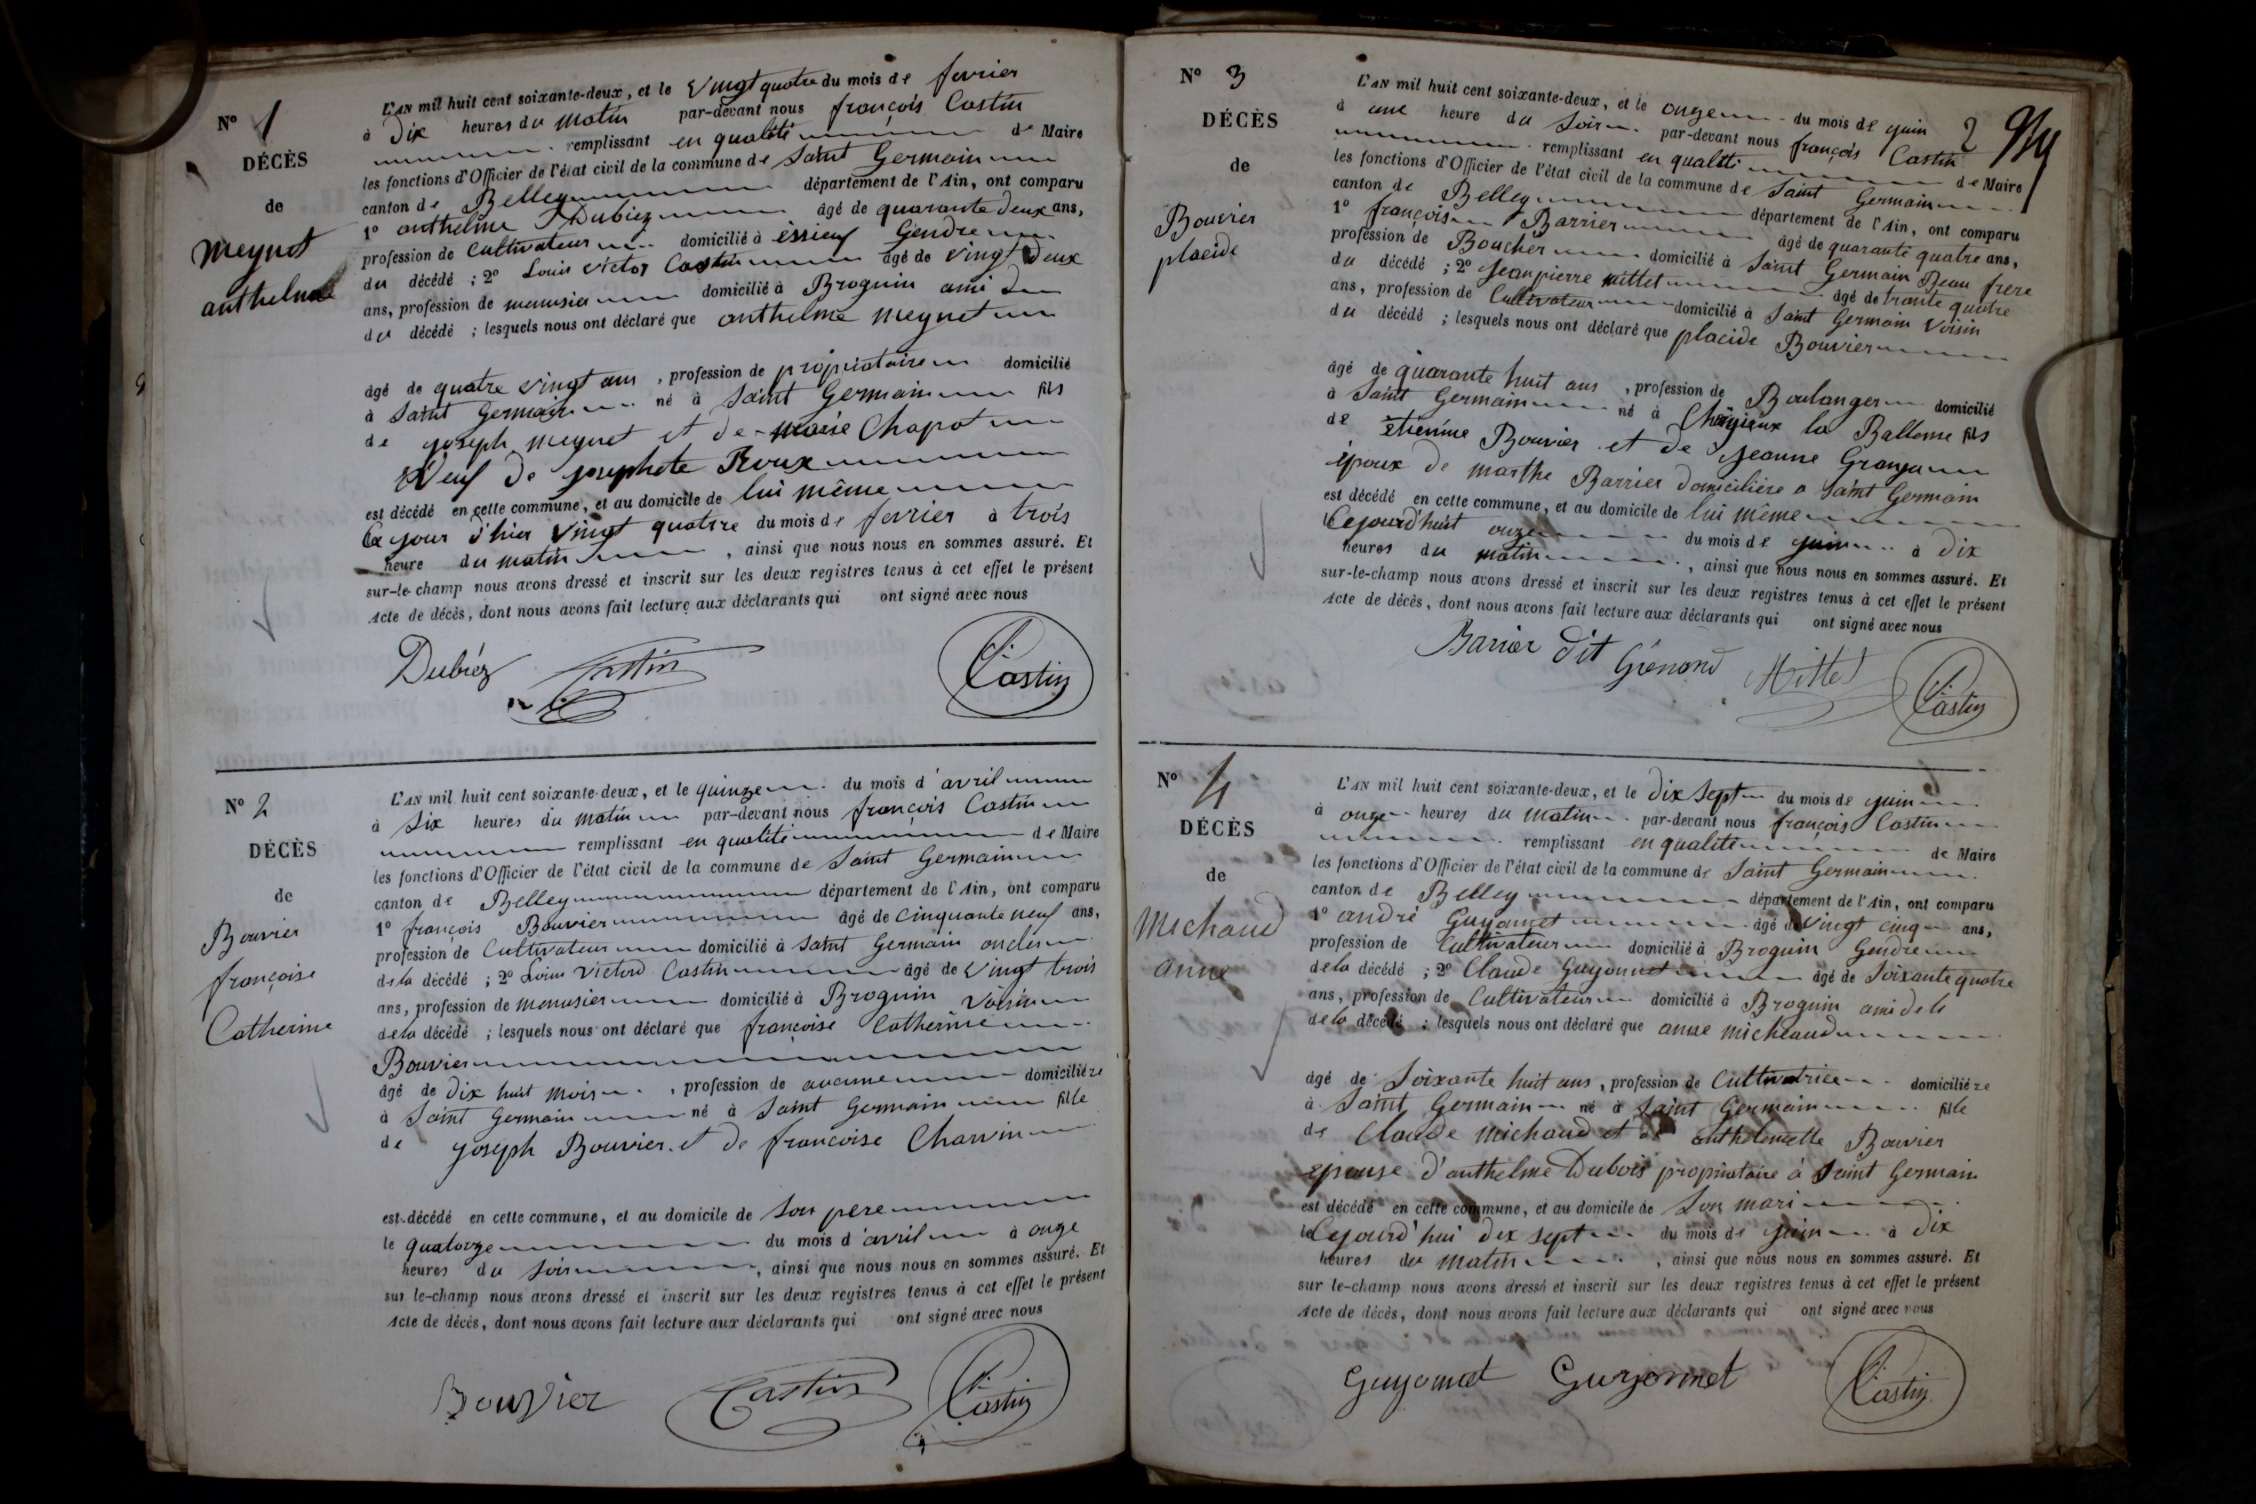 N° 1
DÉCÈS
de
Meynet
anthelme
L'AN mil huit cent soixante-deux, et le vingt quatre du mois de fevrier
à Dix heures du matin par-devant nous françois Castin
remplissant en qualité de Maire
les fonctions d'Officier de l'état civil de la commune de Saint Germain
canton de Belley département de l'Ain, ont comparu
1° anthelme Dubiez âgé de quarante deux ans,
profession de Cultivateur domicilié à essieux Gendre
du décédé ; 2° Louis victor Castin âgé de vingt Deux
ans, profession de menusier domicilié à Brognin ami du
du décédé ; lesquels nous ont déclaré que anthelme meynet
âgé de quatre vingt ans, profession de propriétaire domicilié
à Saint Germain né à Saint Germain fils
de joseph meynet et de Chapot
Veuf de josephete Roux
est décédé en cette commune, et au domicile de lui même
le jour d'hier vingt quatre du mois de fevrier à trois
heure du matin, ainsi que nous nous en sommes assuré. Et
sur-le-champ nous avons dressé et inscrit sur les deux registres tenus à cet effet le présent
Acte de décès, dont nous avons fait lecture aux déclarants qui ont signé avec nous
Dubiéz Castin Castin
N° 2
DÉCÈS
de
Bouvier
françoise
Catherine
L'AN mil huit cent soixante-deux, et le quinze du mois d'avril
à Six heures du matin par-devant nous françois Castin
remplissant en qualité de Maire
les fonctions d'Officier de l'état civil de la commune de Saint Germain
canton de Belley département de l'Ain, ont comparu
1° françois Bouvier âgé de Cinquante neuf ans,
profession de Cultivateur domicilié à Saint Germain oncle
de la décédé ; 2° Louis Victord Castin âgé de vingt trois
ans, profession de menusier domicilié à Brognin Voisin
de la décédé ; lesquels nous ont déclaré que françoise Catherine
Bouvier
âgé de Dix huit mois, profession de aucune domiciliéze
à Saint Germain né à Saint Germain fille
de joseph Bouvier et de francoise Charvin
est décédé en cette commune, et au domicile de Son pere
le quatorze du mois d'avril à onze
heures du Soir, ainsi que nous nous en sommes assuré. Et
sur le-champ nous avons dressé et inscrit sur les deux registres tenus à cet effet le présent
Acte de décès, dont nous avons fait lecture aux déclarants qui ont signé avec nous
Bouvier Castin Castin
N° 3
DÉCÈS
de
Bouvier
placide
2
L'AN mil huit cent soixante-deux, et le onze du mois de juin
à une heure du Soir par-devant nous françois Castin
remplissant en qualité de Maire
les fonctions d'Officier de l'état civil de la commune de Saint Germain
canton de Belley département de l'Ain, ont comparu
1° françois Barrier âgé de quarante quatre ans,
profession de Boucher domicilié à Saint Germain Beau frere
du décédé ; 2° jean pierre mittet âgé de trante quatre
ans, profession de Cultivateur domicilié à Saint Germain Voisin
du décédé ; lesquels nous ont déclaré que placide Bouvier
âgé de quarante huit ans, profession de Boulanger domicilié
à Saint Germain né à la Balleme fils
de Etienne Bouvier et de jeanne
époux de marthe Barrier Domiciliére a Saint Germain
est décédé en cette commune, et au domicile de lui même
le Cejourd'huit onze du mois de juin à Dix
heures du matin, ainsi que nous nous en sommes assuré. Et
sur-le-champ nous avons dressé et inscrit sur les deux registres tenus à cet effet le présent
Acte de décès, dont nous avons fait lecture aux déclarants qui ont signé avec nous
Barrier dit Génond Mittet Castin
N° 4
DÉCÈS
de
Michaud
anne
L'AN mil huit cent soixante-deux, et le Dix Sept du mois de juin
à onze heures du matin par-devant nous françois Castin
remplissant en qualité de Maire
les fonctions d'Officier de l'état civil de la commune de Saint Germain
canton de Belley département de l'Ain, ont comparu
1° andré Guyonnet âgé de vingt cinq ans,
profession de Cultivateur domicilié à Brognin Gendre
de la décédé ; 2° Claude Guyonnet âgé de Soixante quatre
ans, profession de Cultivateur domicilié à Brognin ami de la
de la décédé ; lesquels nous ont déclaré que anne micheaud
âgé de Soixante huit ans, profession de Cultivatrice domiciliéze
à Saint Germain né à Saint Germain fille
de Claude michaud et de anthelmette Bouvier
epouse d'anthelme Dubois propriétaire à Saint Germain
est décédé en cette commune, et au domicile de Son mari
le Cejourd'hui dix sept du mois de juin à Dix
heures du matin, ainsi que nous nous en sommes assuré. Et
sur le-champ nous avons dressé et inscrit sur les deux registres tenus à cet effet le présent
Acte de décès, dont nous avons fait lecture aux déclarants qui ont signé avec nous
Guyonnet Guyonnet Castin